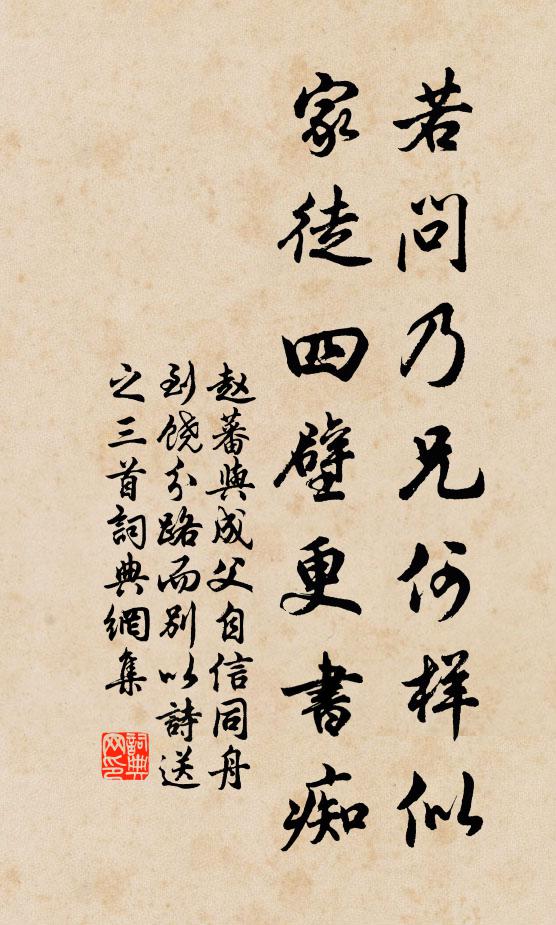 若问乃兄何样似
家徒四壁更書痴
赵蕃與成父自信同舟
到饶分路而别以詩送
之三首詞典網集
詞典網印